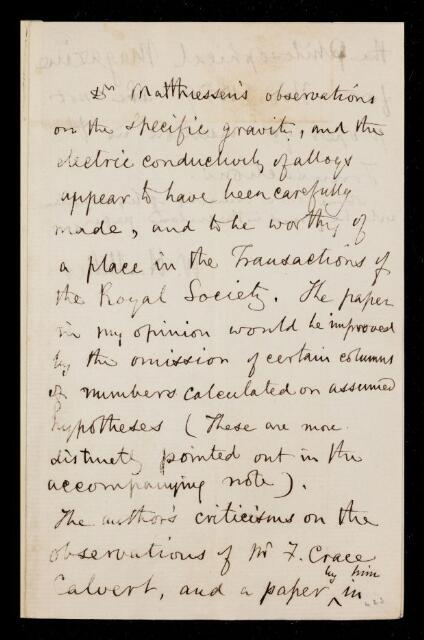 Dr Matthiessen's observations
on the specific gravity, and the
electric conductivity of alloys
appear to have been carefully
made, and to be worthy of
a place in the Transactions of
the Royal Society. The paper
in my opinion would be improved
by the omission of certain columns
of numbers calculated on assumed
hypotheses (These are more
distinctly pointed out in the
accompanying note).
The author's criticisms on the
observations of Mr F. Crace
Calvert, and a paper by him in